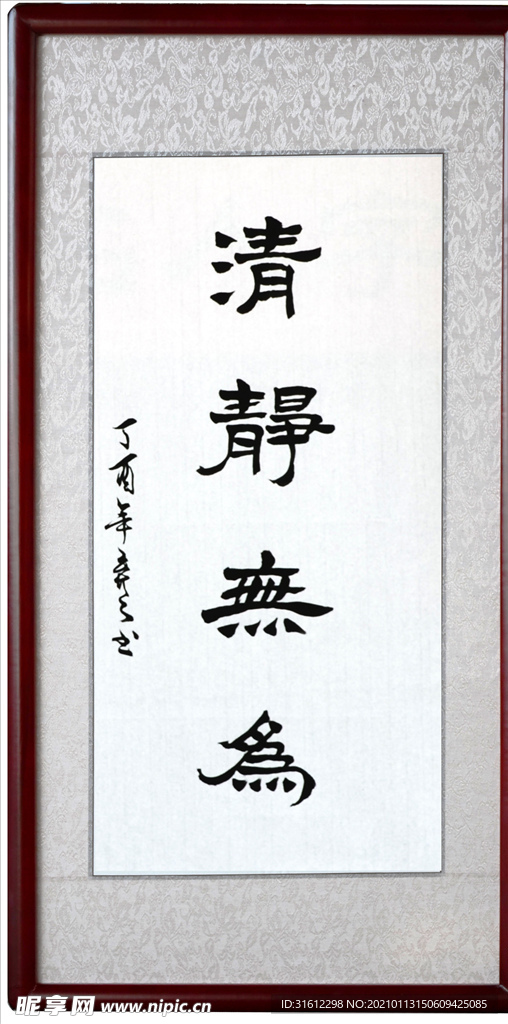 清靜無為
丁酉年弃之书
昵享网 www.nipic.cn
ID:31612298 NO:20210113150609425085